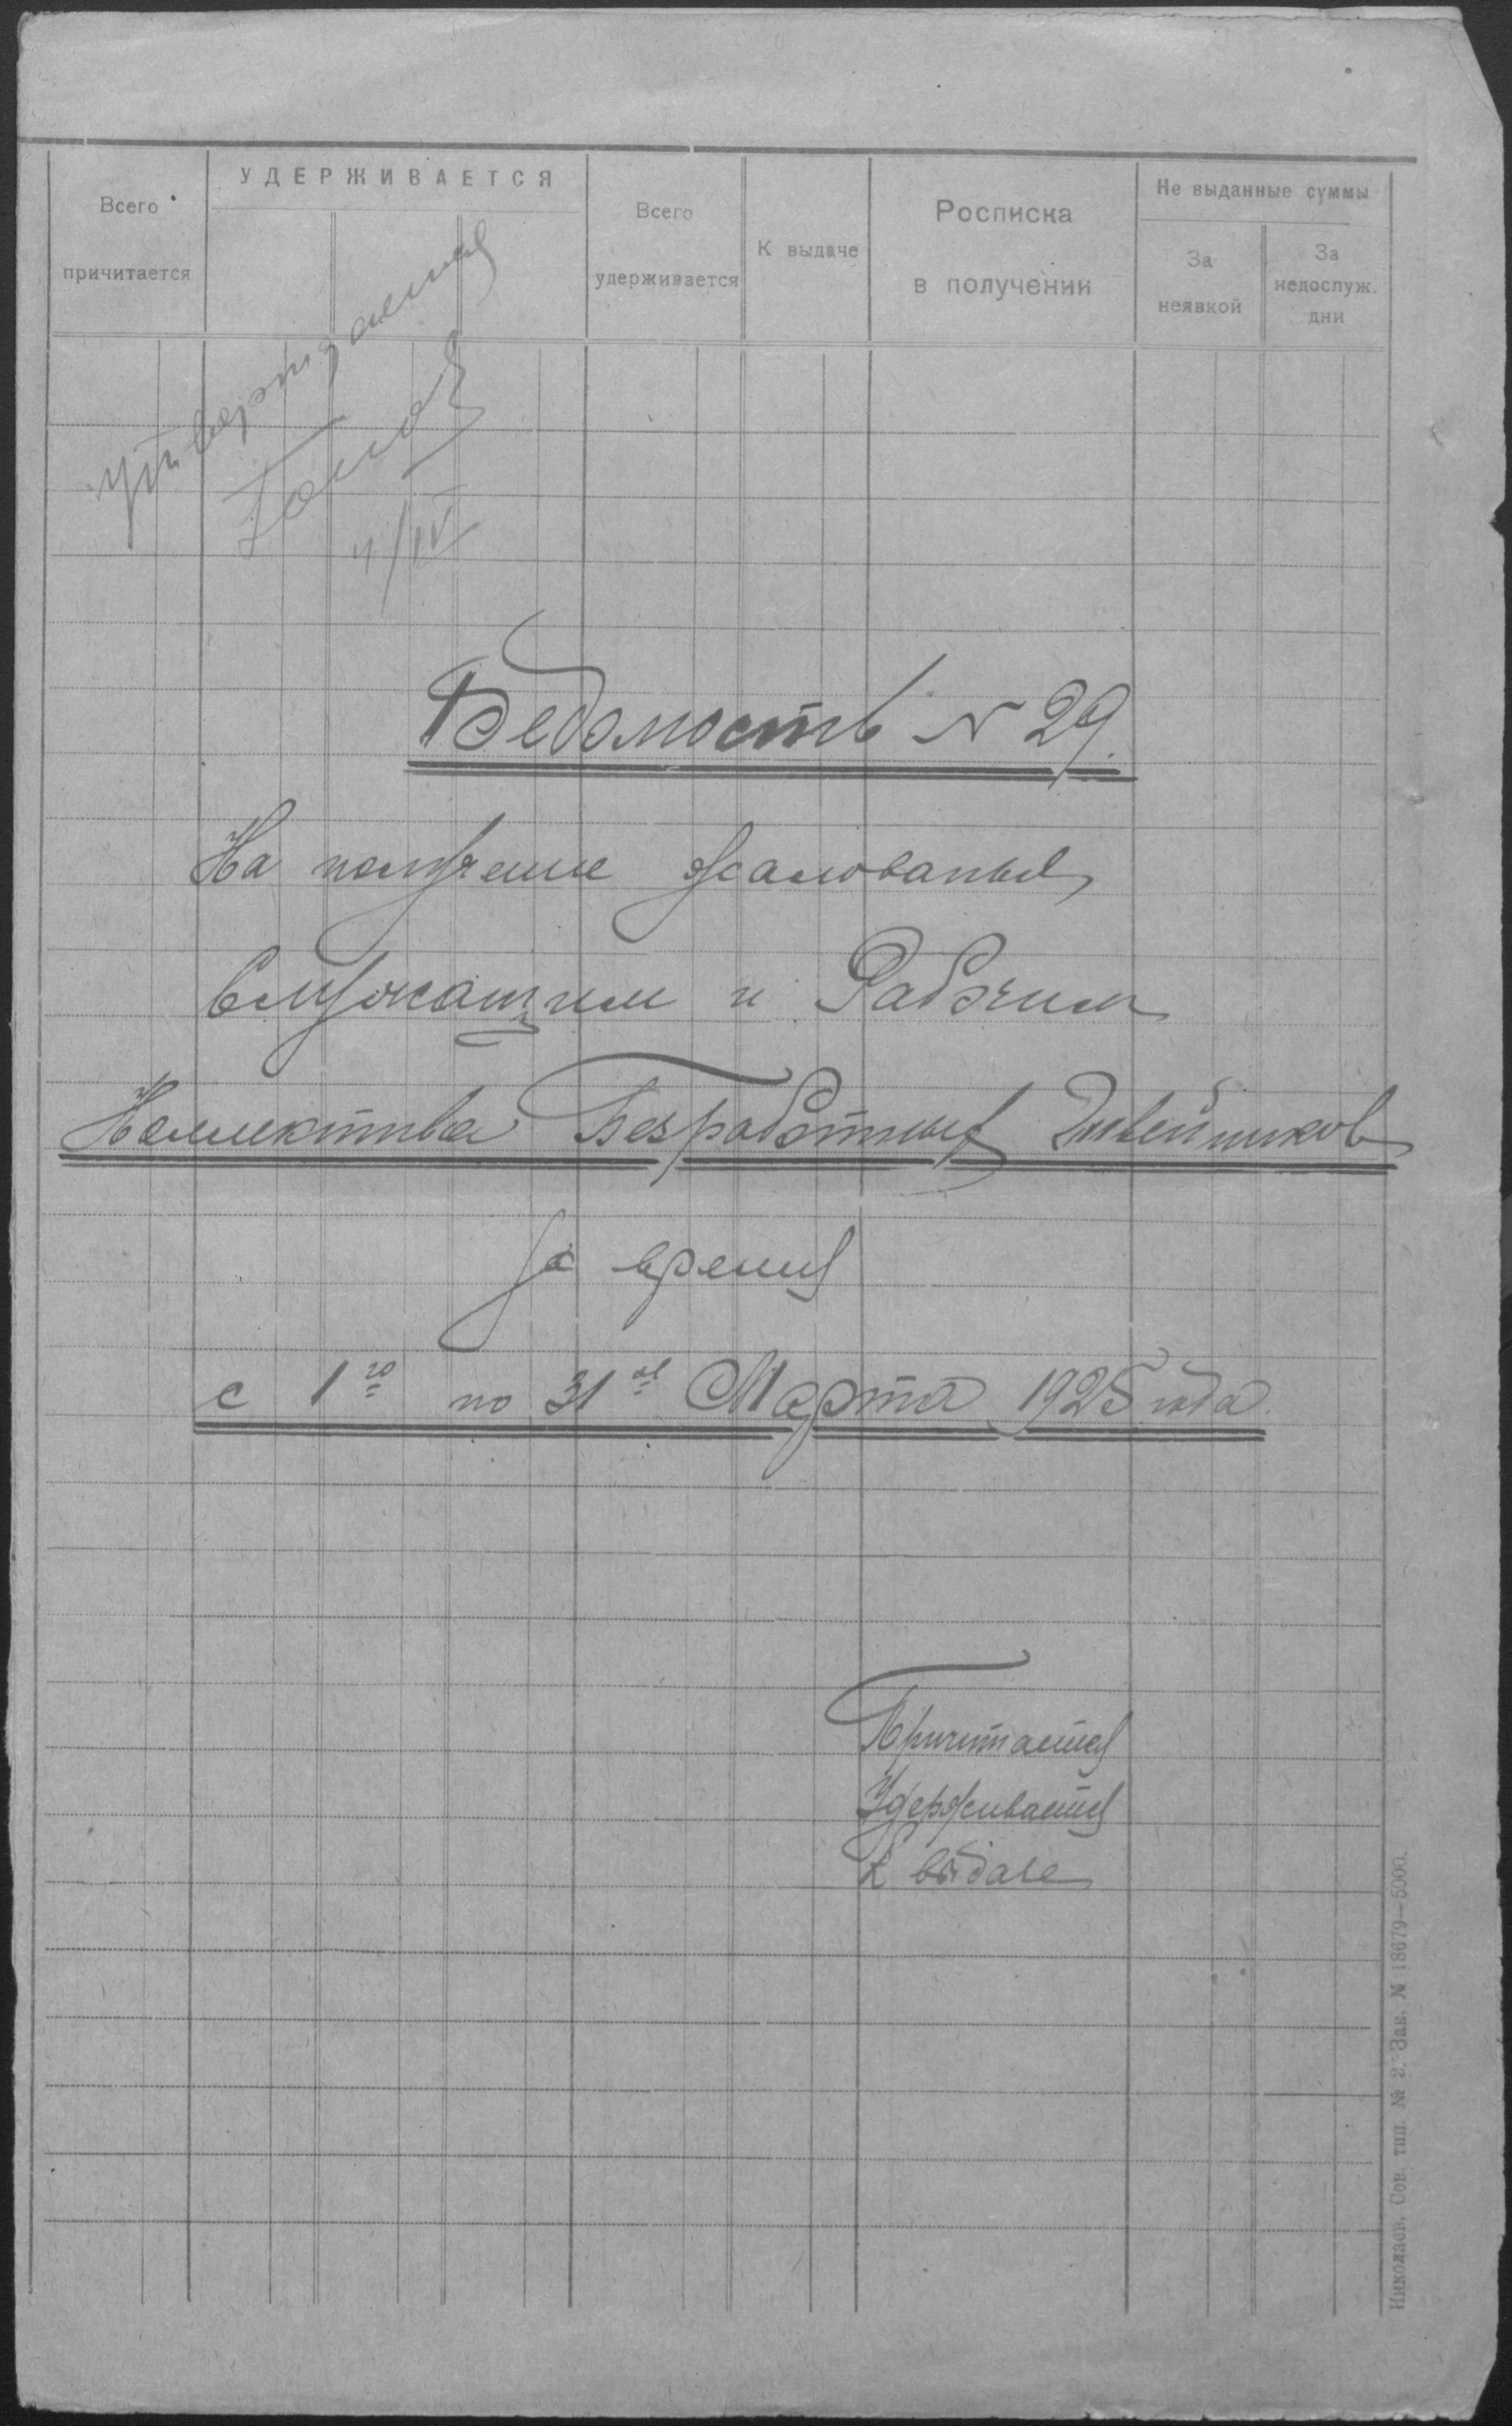 Всего причитается
УДЕРЖИВАЕТСЯ
Всего удерживается
К выдаче
Росписка в получении
Не выданные суммы
За неявкой
За недослуж. дни
Утверждается
4/IV
Ведомость N 29.
На получение жалованья
Служащим и Рабочим
Коллектива Безработных Швейников
За время
с 1го по 31ое Марта 1925 года.
Причитается
Удерживается
К выдаче
Николаев, Сов. тип. № 2. Зак. № 18679—5000.